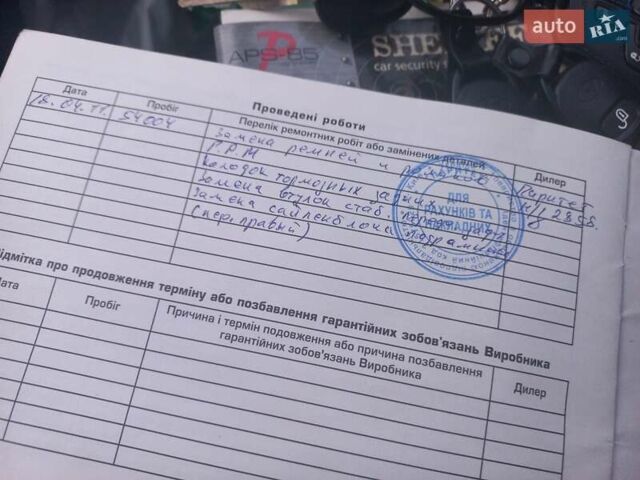 auto RIA.com
APS-85
SHE
car security s
Проведені роботи
Дата
Пробіг
Перелік ремонтних робіт або замінених деталей
Дилер
18.04.11.
54004
Замена ремней и роликов
Паритет
Г.Р.М
Н/1 2858.
Колодок тормозных задних
Замена втулок стаб.
Замена сайленблока подрамника
(перправый)
ДЛЯ
РАХУНКІВ ТА
НАКЛАДНИХ
Відмітка про продовження терміну або позбавлення гарантійних зобов'язань Виробника
Дата
Пробіг
Причина і термін подовження або причина позбавлення
гарантійних зобов'язань Виробника
Дилер